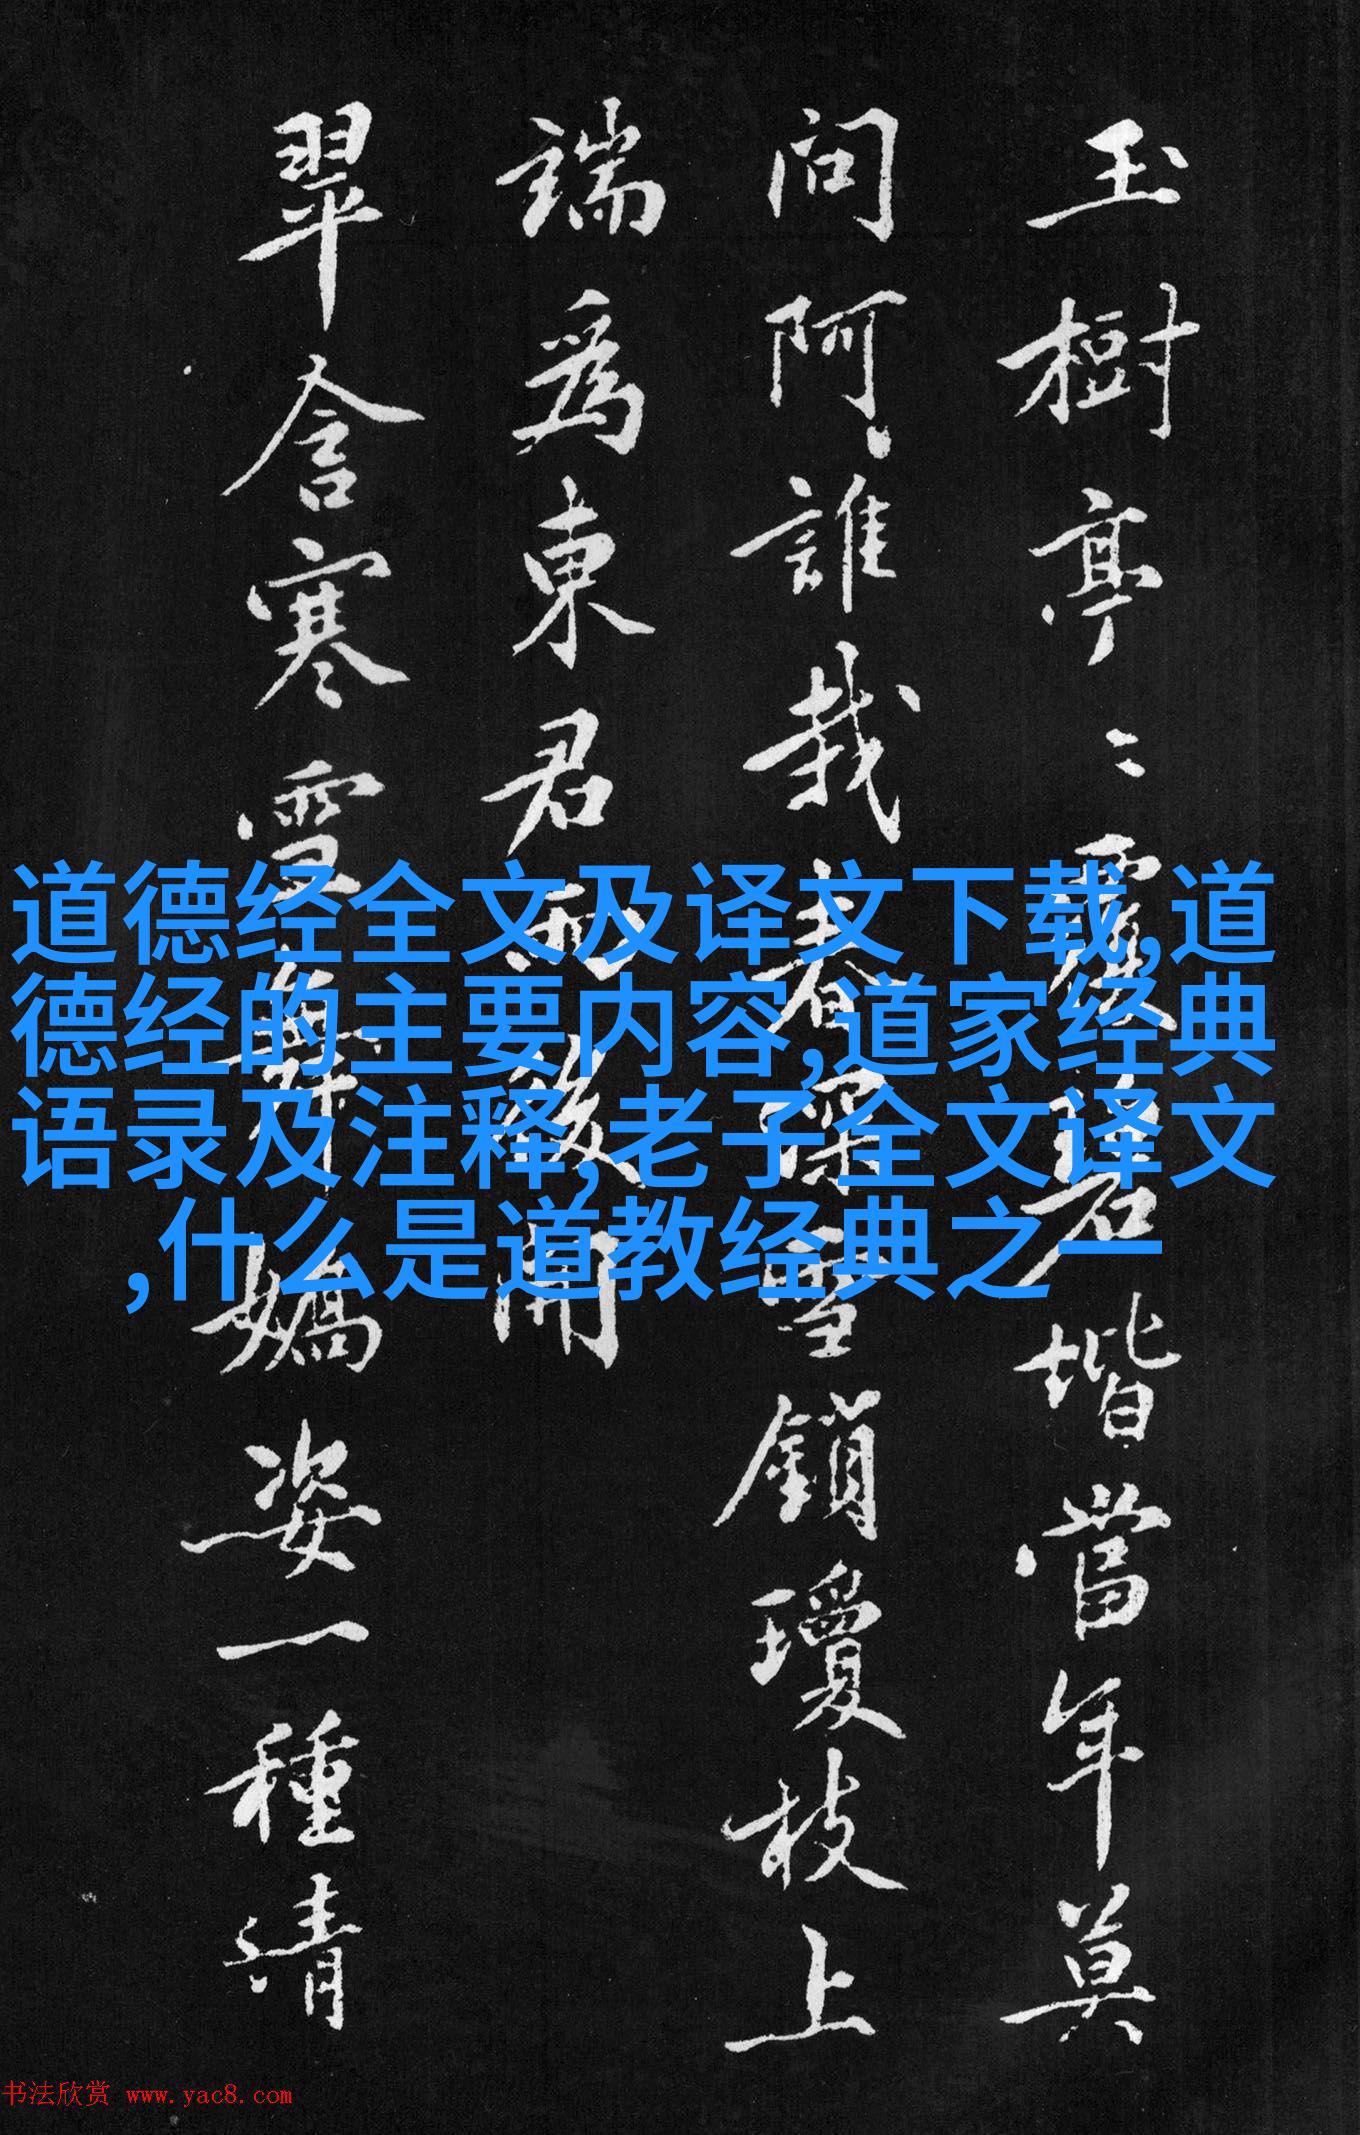 玉樹亭〻覆碧堦當年莫
問阿誰栽春深雪鎖瓊枝上
端為東君雨後開
翠含寒雪舞嬌姿一種清
道德经全文及译文下载,道
德经的主要内容,道家经典
语录及注释,老子全文译文
,什么是道教经典之一
书法欣赏 www.yac8.com